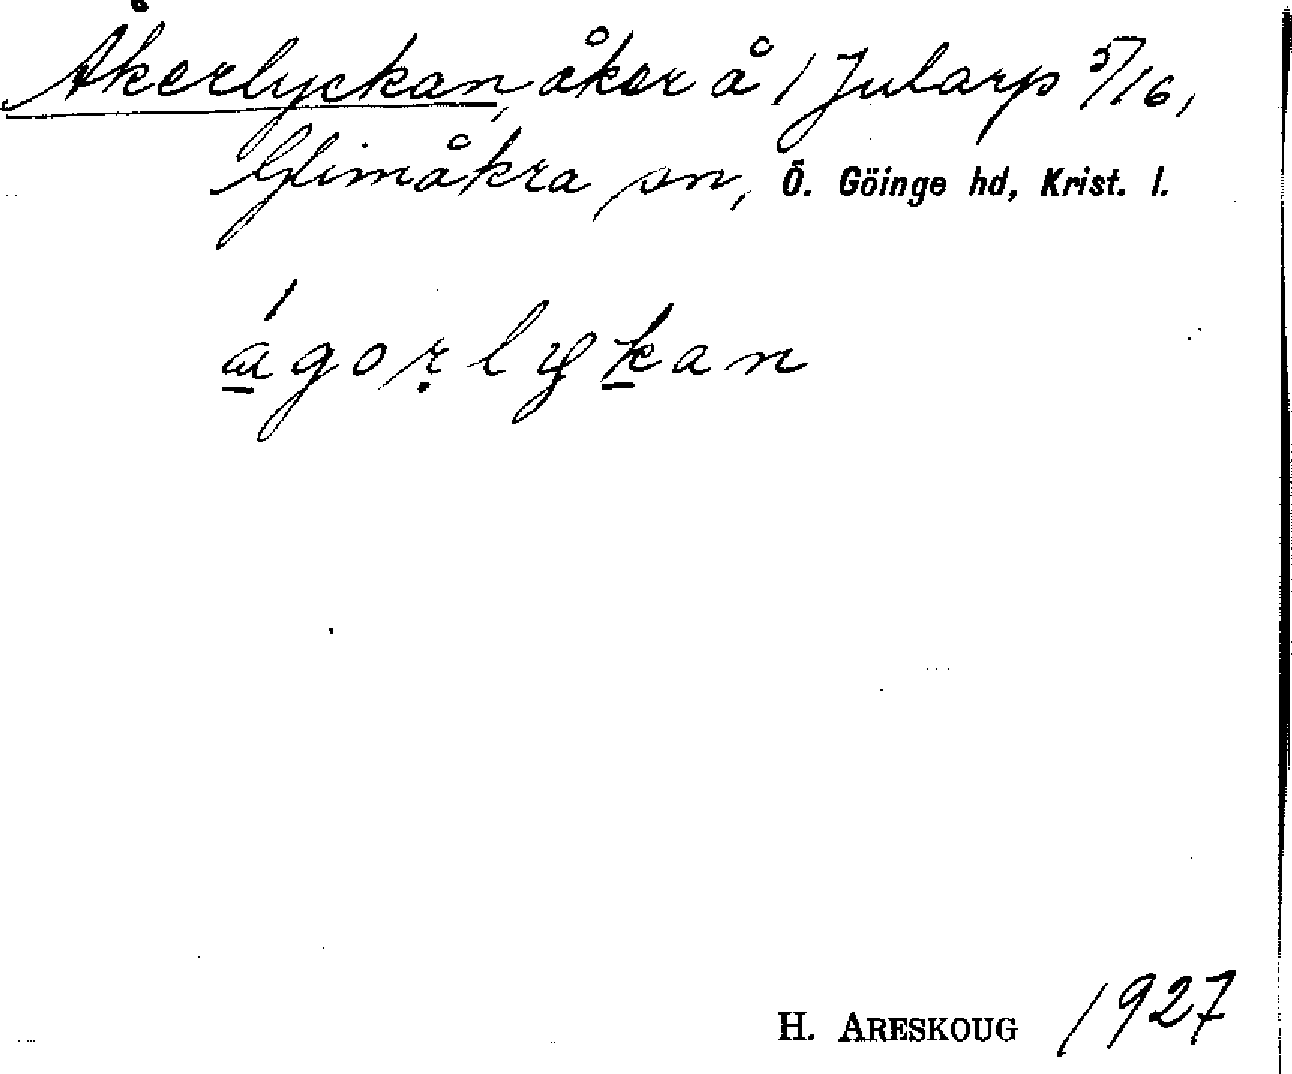 Åkerlyckan, åker å 1 Jularp 5/16,
Glimåkra sn, Ö. Göinge hd, Krist. l.
ágoṛlyḵan
H. ARESKOUG 1927